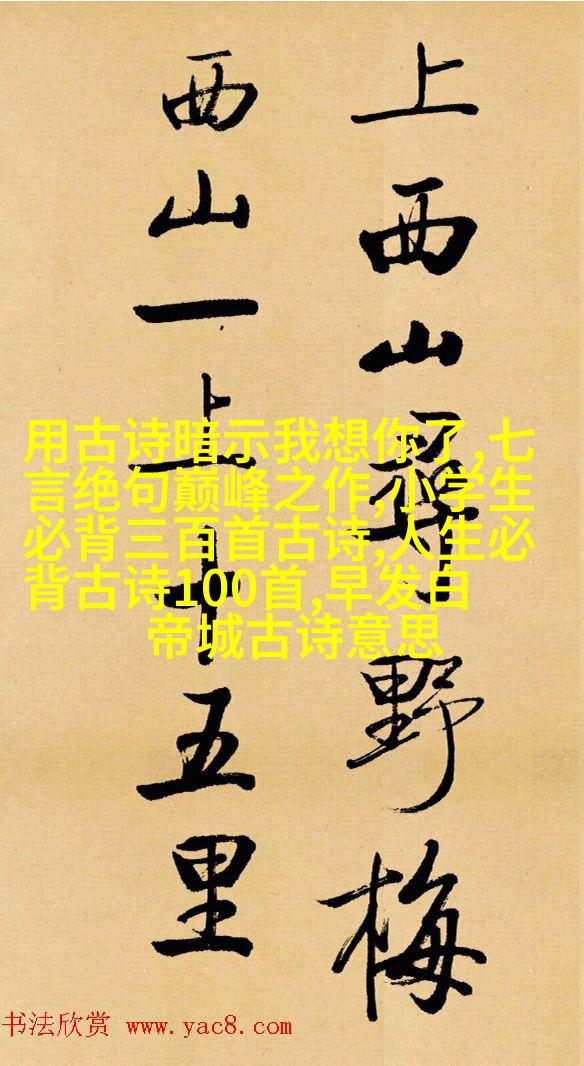 上西山尋野梅
西山一上十五里
用古诗暗示我想你了,七
言绝句巅峰之作,小学生
必背三百首古诗,人生必
背古诗100首,早发白
帝城古诗意思
书法欣赏 www.yac8.com